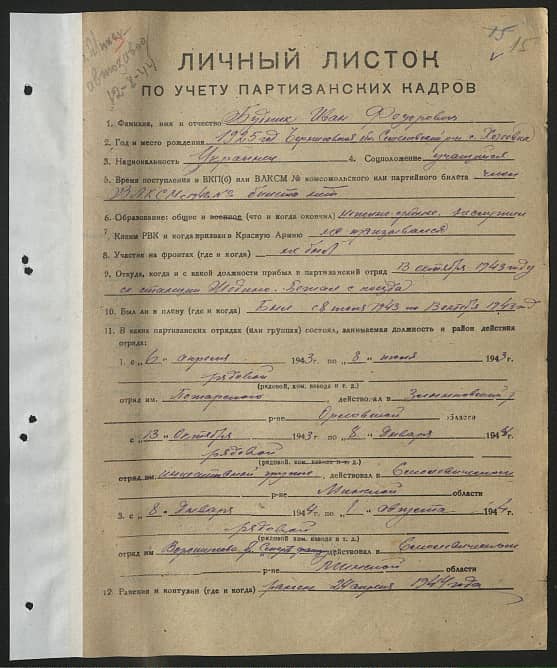 15
15
12-8-44
ЛИЧНЫЙ ЛИСТОК
ПО УЧЕТУ ПАРТИЗАНСКИХ КАДРОВ
1. Фамилия, имя и отчество Иван
2. Год и место рождения 1925 год Черниговской обл.
3. Национальность Украинец 4. Соцположение учащийся
5. Время поступления в ВКП(б) или ВЛКСМ № комсомольского или партийного билета член
ВЛКСМ билета нет
6. Образование: общее и военное (что и когда окончил)
7. Каким РВК и когда призван в Красную Армию не призывался
8. Участие на фронтах (где и когда) не был
9. Откуда, когда и с какой должности прибыл в партизанский отряд 13 октября 1943 году
со станции Жодино. Бежал с поезда
10. Был ли в плену (где и когда) Был с 8 июня 1943 по 13 октября 1943 год
11. В каких партизанских отрядах (или группах) состоял, занимаемая должность и район действия
отряда:
1. с „6" апреля 1943 г. по „8" июня 1943 г.
рядовой
(рядовой, ком. взвода и т. д.)
отряд им. Пожарского, действовал в
р-не Орловской области
с „13" Октября 1943 г. по „8" Января 1944 г.
рядовой
(рядовой, ком. взвода и т. д.)
отряд им. группе, действовал в Смолевическом
р-не Минской области
3. с „8" Января 1944 г. по „1" августа 1944 г.
рядовой
(рядовой, ком. взвода и т. д.)
отряд им Ворошилова действовал в Смолевическом
р-не Минской области
12. Ранения и контузии (где и когда) ранен 24 апреля 1944 года